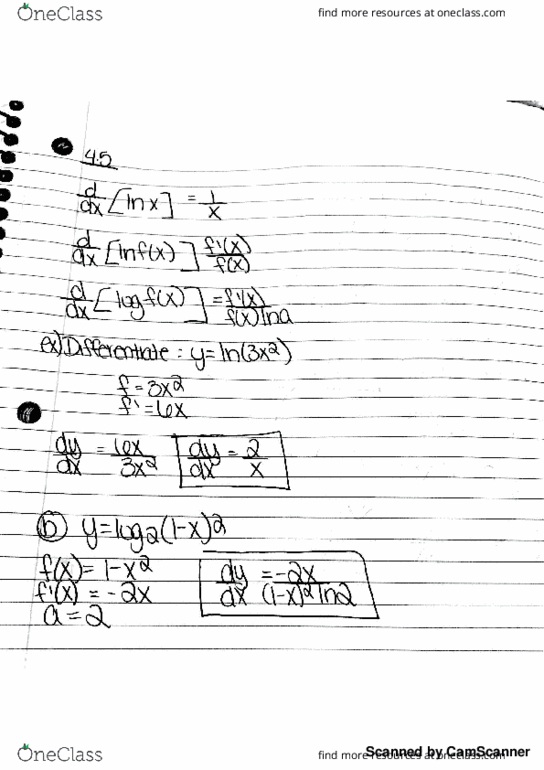 OneClass
find more resources at oneclass.com
4.5
d/dx [ln x] = 1/x
d/dx [ln f(x)] f'(x)/f(x)
d/dx [log f(x)] = f'(x)/f(x) ln a
ex) Differentiate: y = ln(3x²)
f = 3x²
f' = 6x
dy/dx = 6x/3x² dy/dx = 2/x
(b) y = log₂(1-x)²
f(x) = 1-x²
f'(x) = -2x
a = 2
dy/dx = -2x/(1-x)² ln2
OneClass
find more resources at oneclass.com
Scanned by CamScanner